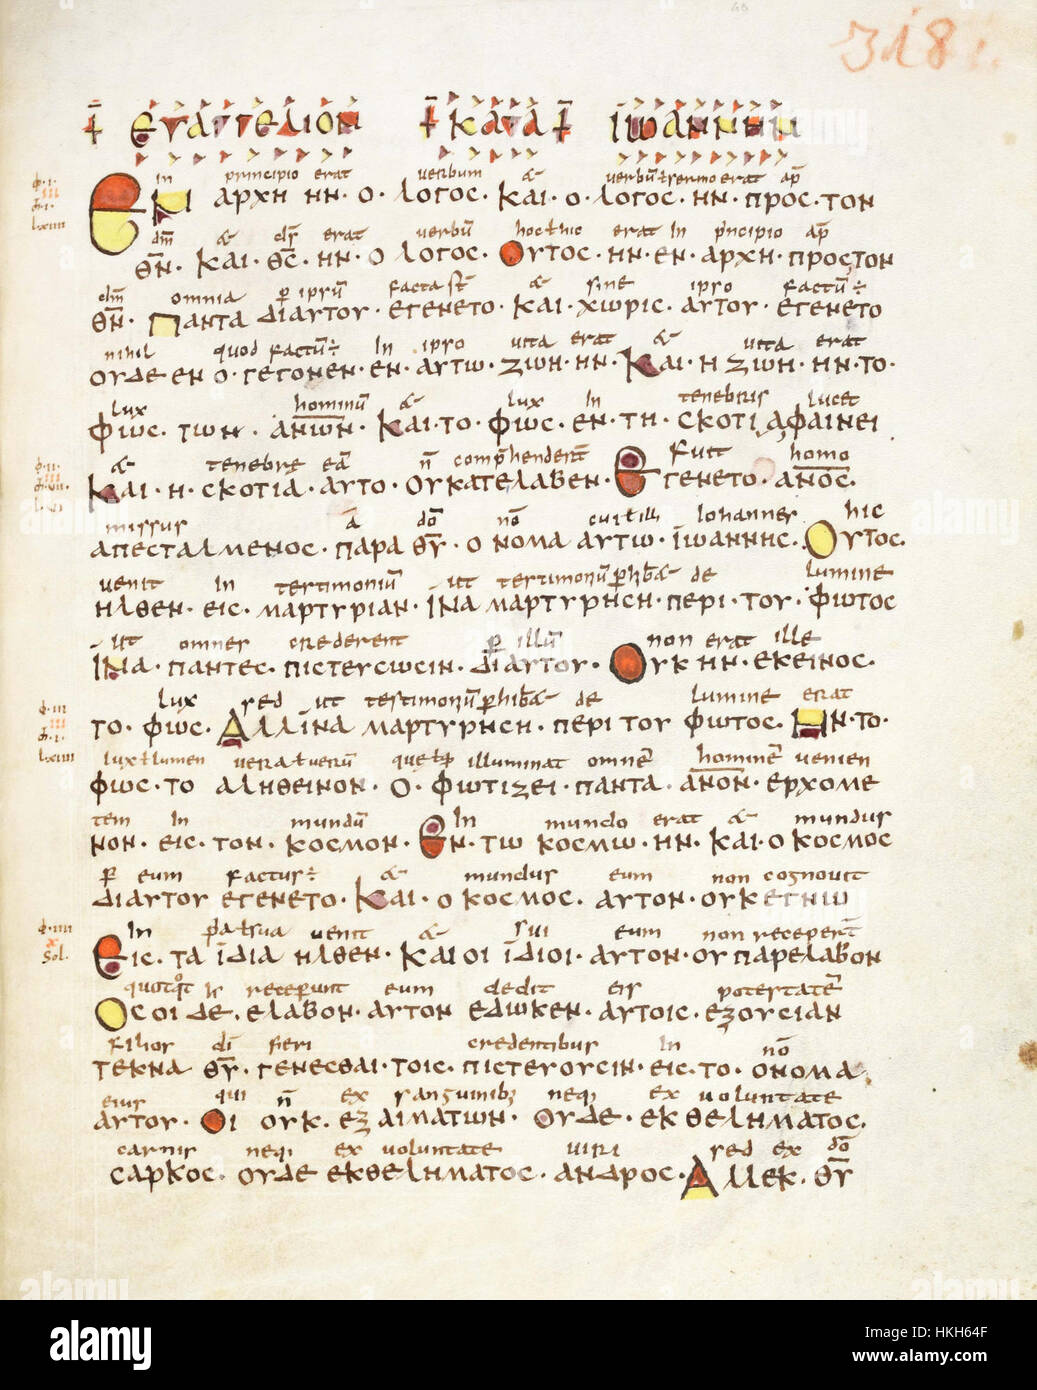 318
ⲉⲩⲁⲅⲅⲉⲗⲓⲟⲛ ⲕⲁⲧⲁ ⲓⲱⲁⲛⲛⲏⲛ
in principio erat verbum & verbū ł sermo erat ap̄
ΕΝ ΑΡΧΗ ΗΝ· Ο· ΛΟΓΟC· ΚΑΙ· Ο· ΛΟΓΟC· ΗΝ· ΠΡΟC· ΤΟΝ
dm̄ & ds̄ erat verbū hoc ł hic erat in p̄ncipio ap̄
Θ̅Ν̅· ΚΑΙ· Θ̅C̅· ΗΝ· Ο ΛΟΓΟC· ΟΥΤΟC· ΗΝ· ΕΝ· ΑΡΧΗ· ΠΡΟC ΤΟΝ
dm̄ omnia p̄ ipsū facta st̄ & sine ipso factū ÷
Θ̅Ν̅· ΠΑΝΤΑ ΔΙΑΥΤΟΥ· ΕΓΕΝΕΤΟ· ΚΑΙ· ΧΩΡΙC· ΑΥΤΟΥ· ΕΓΕΝΕΤΟ
nihil quod factū ÷ in ipso vita erat & vita erat
ΟΥΔΕ ΕΝ Ο· ΓΕΓΟΝΕΝ· ΕΝ· ΑΥΤΩ· ΖΩΗ· ΗΝ· ΚΑΙ· Η ΖΩΗ· ΗΝ· ΤΟ·
lux hominū & lux in tenebris lucet
ΦΩC· ΤΩΝ· Α̅Ν̅Ω̅Ν̅· ΚΑΙ· ΤΟ· ΦΩC· ΕΝ· ΤΗ· CΚΟΤΙΑ ΦΑΙΝΕΙ
& tenebre eā n̄ comp̄henderūt fuit homo
ΚΑΙ· Η· CΚΟΤΙΑ· ΑΥΤΟ· ΟΥ ΚΑΤΕΛΑΒΕΝ· ΕΓΕΝΕΤΟ· Α̅Ν̅Ο̅C̅·
missus ā dō nō cui ł illi iohannes hic
ΑΠΕCΤΑΛΜΕΝΟC· ΠΑΡΑ Θ̅Υ̅· Ο ΝΟΜΑ ΑΥΤΩ· ΙΩΑΝΝΗC· ΟΥΤΟC·
venit in testimoniū ut testimoniū p̄hib& de lumine
ΗΛΘΕΝ· ΕΙC· ΜΑΡΤΥΡΙΑΝ· ΙΝΑ ΜΑΡΤΥΡΗCΗ· ΠΕΡΙ· ΤΟΥ· ΦΩΤΟC
ut omnes crederent p̄ illū non erat ille
ΙΝΑ· ΠΑΝΤΕC· ΠΙCΤΕΥCΩCΙΝ· ΔΙΑΥΤΟΥ· ΟΥΚ ΗΝ· ΕΚΕΙΝΟC·
lux sed ut testimoniū p̄hib& de lumine erat
ΤΟ· ΦΩC· ΑΛΛΙΝΑ ΜΑΡΤΥΡΗCΗ· ΠΕΡΙ ΤΟΥ ΦΩΤΟC· ΗΝ· ΤΟ·
lux ł lumen vera ł verū que ł illuminat omnē hominē venien
ΦΩC· ΤΟ ΑΛΗΘΕΙΝΟΝ· Ο· ΦΩΤΙΖΕΙ· ΠΑΝΤΑ· Α̅Ν̅Ο̅Ν̅· ΕΡΧΟΜΕ
tem in mundū in mundo erat & mundus
ΝΟΝ· ΕΙC· ΤΟΝ· ΚΟCΜΟΝ· ΕΝ· ΤΩ ΚΟCΜΩ· ΗΝ· ΚΑΙ· Ο ΚΟCΜΟC
p̄ eum factus ÷ & mundus eum non cognovit
ΔΙΑΥΤΟΥ ΕΓΕΝΕΤΟ· ΚΑΙ· Ο ΚΟCΜΟC· ΑΥΤΟΝ· ΟΥΚ ΕΓΝΩ
in sua venit & sui eum non receperūt
ΕΙC· ΤΑ ΙΔΙΑ ΗΛΘΕΝ· ΚΑΙ ΟΙ ΙΔΙΟΙ· ΑΥΤΟΝ· ΟΥ ΠΑΡΕΛΑΒΟΝ
receperunt eum dedit eis potestatē
ΟCΟΙ ΔΕ· ΕΛΑΒΟΝ· ΑΥΤΟΝ ΕΔΩΚΕΝ· ΑΥΤΟΙC· ΕΞΟΥCΙΑΝ
filios dī fieri credentibus in nō
ΤΕΚΝΑ Θ̅Υ̅· ΓΕΝΕCΘΑΙ· ΤΟΙC· ΠΙCΤΕΥΟΥCΙΝ· ΕΙC· ΤΟ· ΟΝΟΜΑ
eius qui n̄ ex sanguinib; neq; ex voluntate
ΑΥΤΟΥ· ΟΙ ΟΥΚ· ΕΞ ΑΙΜΑΤΩΝ· ΟΥΔΕ· ΕΚ ΘΕΛΗΜΑΤΟC·
carnis neq; ex voluntate viri sed ex dō
CΑΡΚΟC· ΟΥΔΕ ΕΚ ΘΕΛΗΜΑΤΟC· ΑΝΔΡΟC· ΑΛΛ ΕΚ· Θ̅Υ̅
alamy
Image ID: HKH64F
www.alamy.com